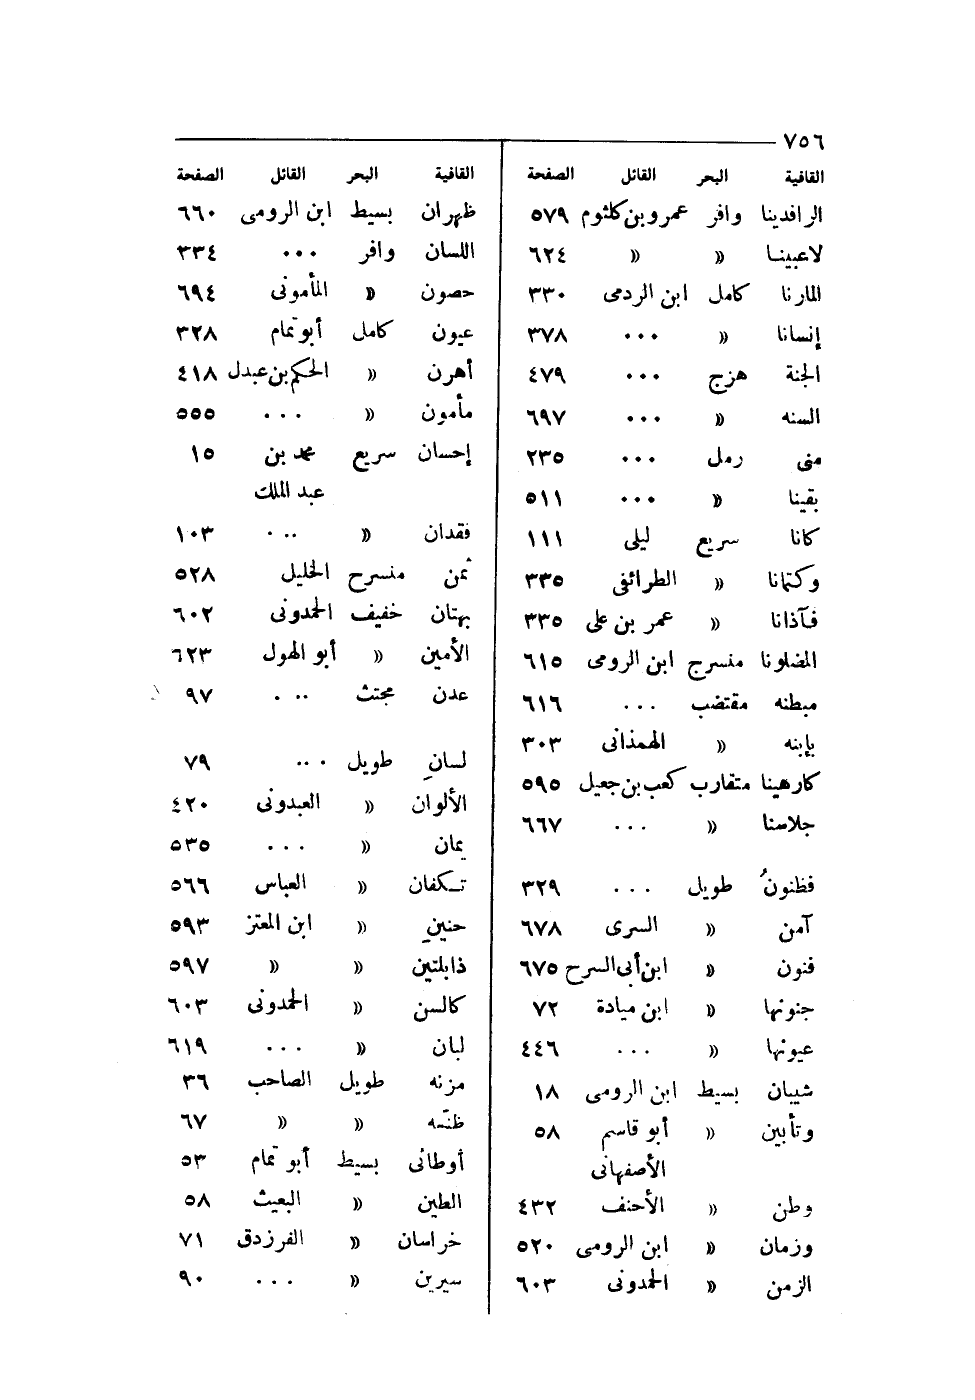 ٧٥٦
القافية البحر القائل الصفحة
الرافدينا وافر عمرو بن كلثوم ٥٧٩
لاعبينا » » ٦٢٤
المارنا كامل ابن الردمى ٣٣٠
إنسانا » ... ٣٧٨
الجنة هزج ... ٤٧٩
السنه » ... ٦٩٧
منى رمل ... ٢٣٥
بقينا » ... ٥١١
كانا سريع ليلى ١١١
وكتمانا » الطرائفى ٣٣٥
فآذانا » عمر بن على ٣٣٥
المضلونا منسرج ابن الرومى ٦١٥
مبطنه مقتضب ... ٦١٦
بإبنه » الهمذانى ٣٠٣
كارهينا متقارب كعب بن جعيل ٥٩٥
جلاسنا » ... ٦٦٧
فظنونُ طويل ... ٣٢٩
آمن » السرى ٦٧٨
فنون » ابن أبى السرح ٦٧٥
جنونها » ابن ميادة ٧٢
عيونها » ... ٤٤٦
شيبان بسيط ابن الرومى ١٨
وتأبين » أبو قاسم ٥٨
الأصفهانى
وطن » الأحنف ٤٣٢
وزمان » ابن الرومى ٥٢٠
الزمن » الحمدونى ٦٠٣
القافية البحر القائل الصفحة
ظهران بسيط ابن الرومى ٦٦٠
اللسان وافر ... ٣٣٤
حصون » المأمونى ٦٩٤
عيون كامل أبو تمام ٣٢٨
أهرن » الحكم بن عبدل ٤١٨
مأمون » ... ٥٥٥
إحسان سريع محمد بن ١٥
عبد الملك
فقدان » ... ١٠٣
ثمن منسرح الخليل ٥٢٨
بهتان خفيف الحمدونى ٦٠٢
الأمين » أبو الهول ٦٢٣
عدن مجتث ... ٩٧
لسانِ طويل ... ٧٩
الألوان » العبدونى ٤٢٠
يمان » ... ٥٣٥
تكفان » العباس ٥٦٦
حنينِ » ابن المعتز ٥٩٣
ذابلتين » » ٥٩٧
كالسن » الحمدونى ٦٠٣
لبان » ... ٦١٩
مزنه طويل الصاحب ٣٦
ظنّه » » ٦٧
أوطانى بسيط أبو تمام ٥٣
الطين » البعيث ٥٨
خراسان » الفرزدق ٧١
سيرين » ... ٩٠